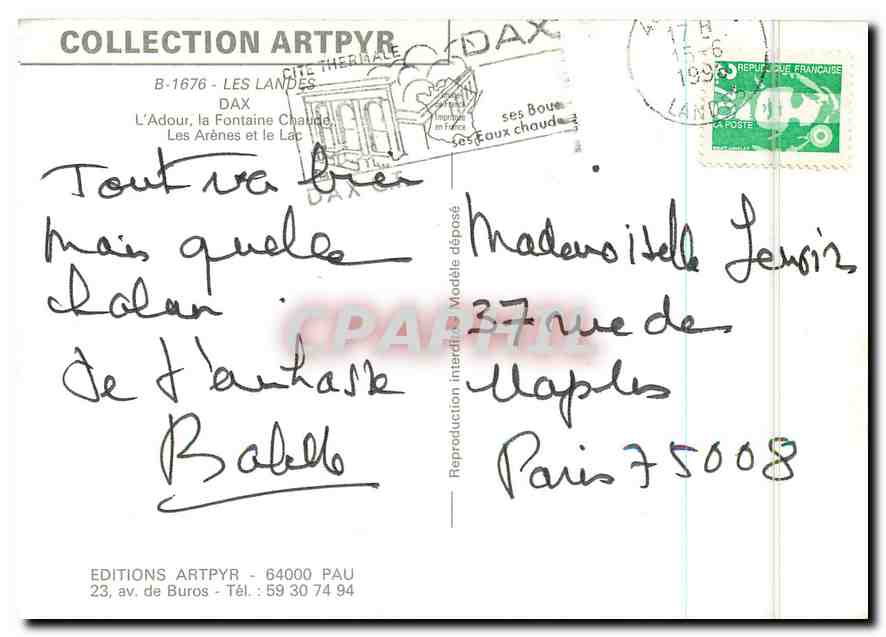 COLLECTION ARTPYR
B-1676 - LES LANDES
DAX
L'Adour, la Fontaine Chaude,
Les Arènes et le Lac
CITE THERMALE
DAX
ses Boues
ses Eaux chaudes
Imprimé
en France
DAX C.T.
17 H
15-6
1996
LANDES
REPUBLIQUE FRANÇAISE
LA POSTE
Tout va bien
mais quelle
chaleur.
Je t'embrasse
Babette
Mademoiselle Lenoir
37 rue de
Naples
Paris 75008
Reproduction interdite Modèle déposé
CPAPHIL
EDITIONS ARTPYR - 64000 PAU
23, av. de Buros - Tél. : 59 30 74 94